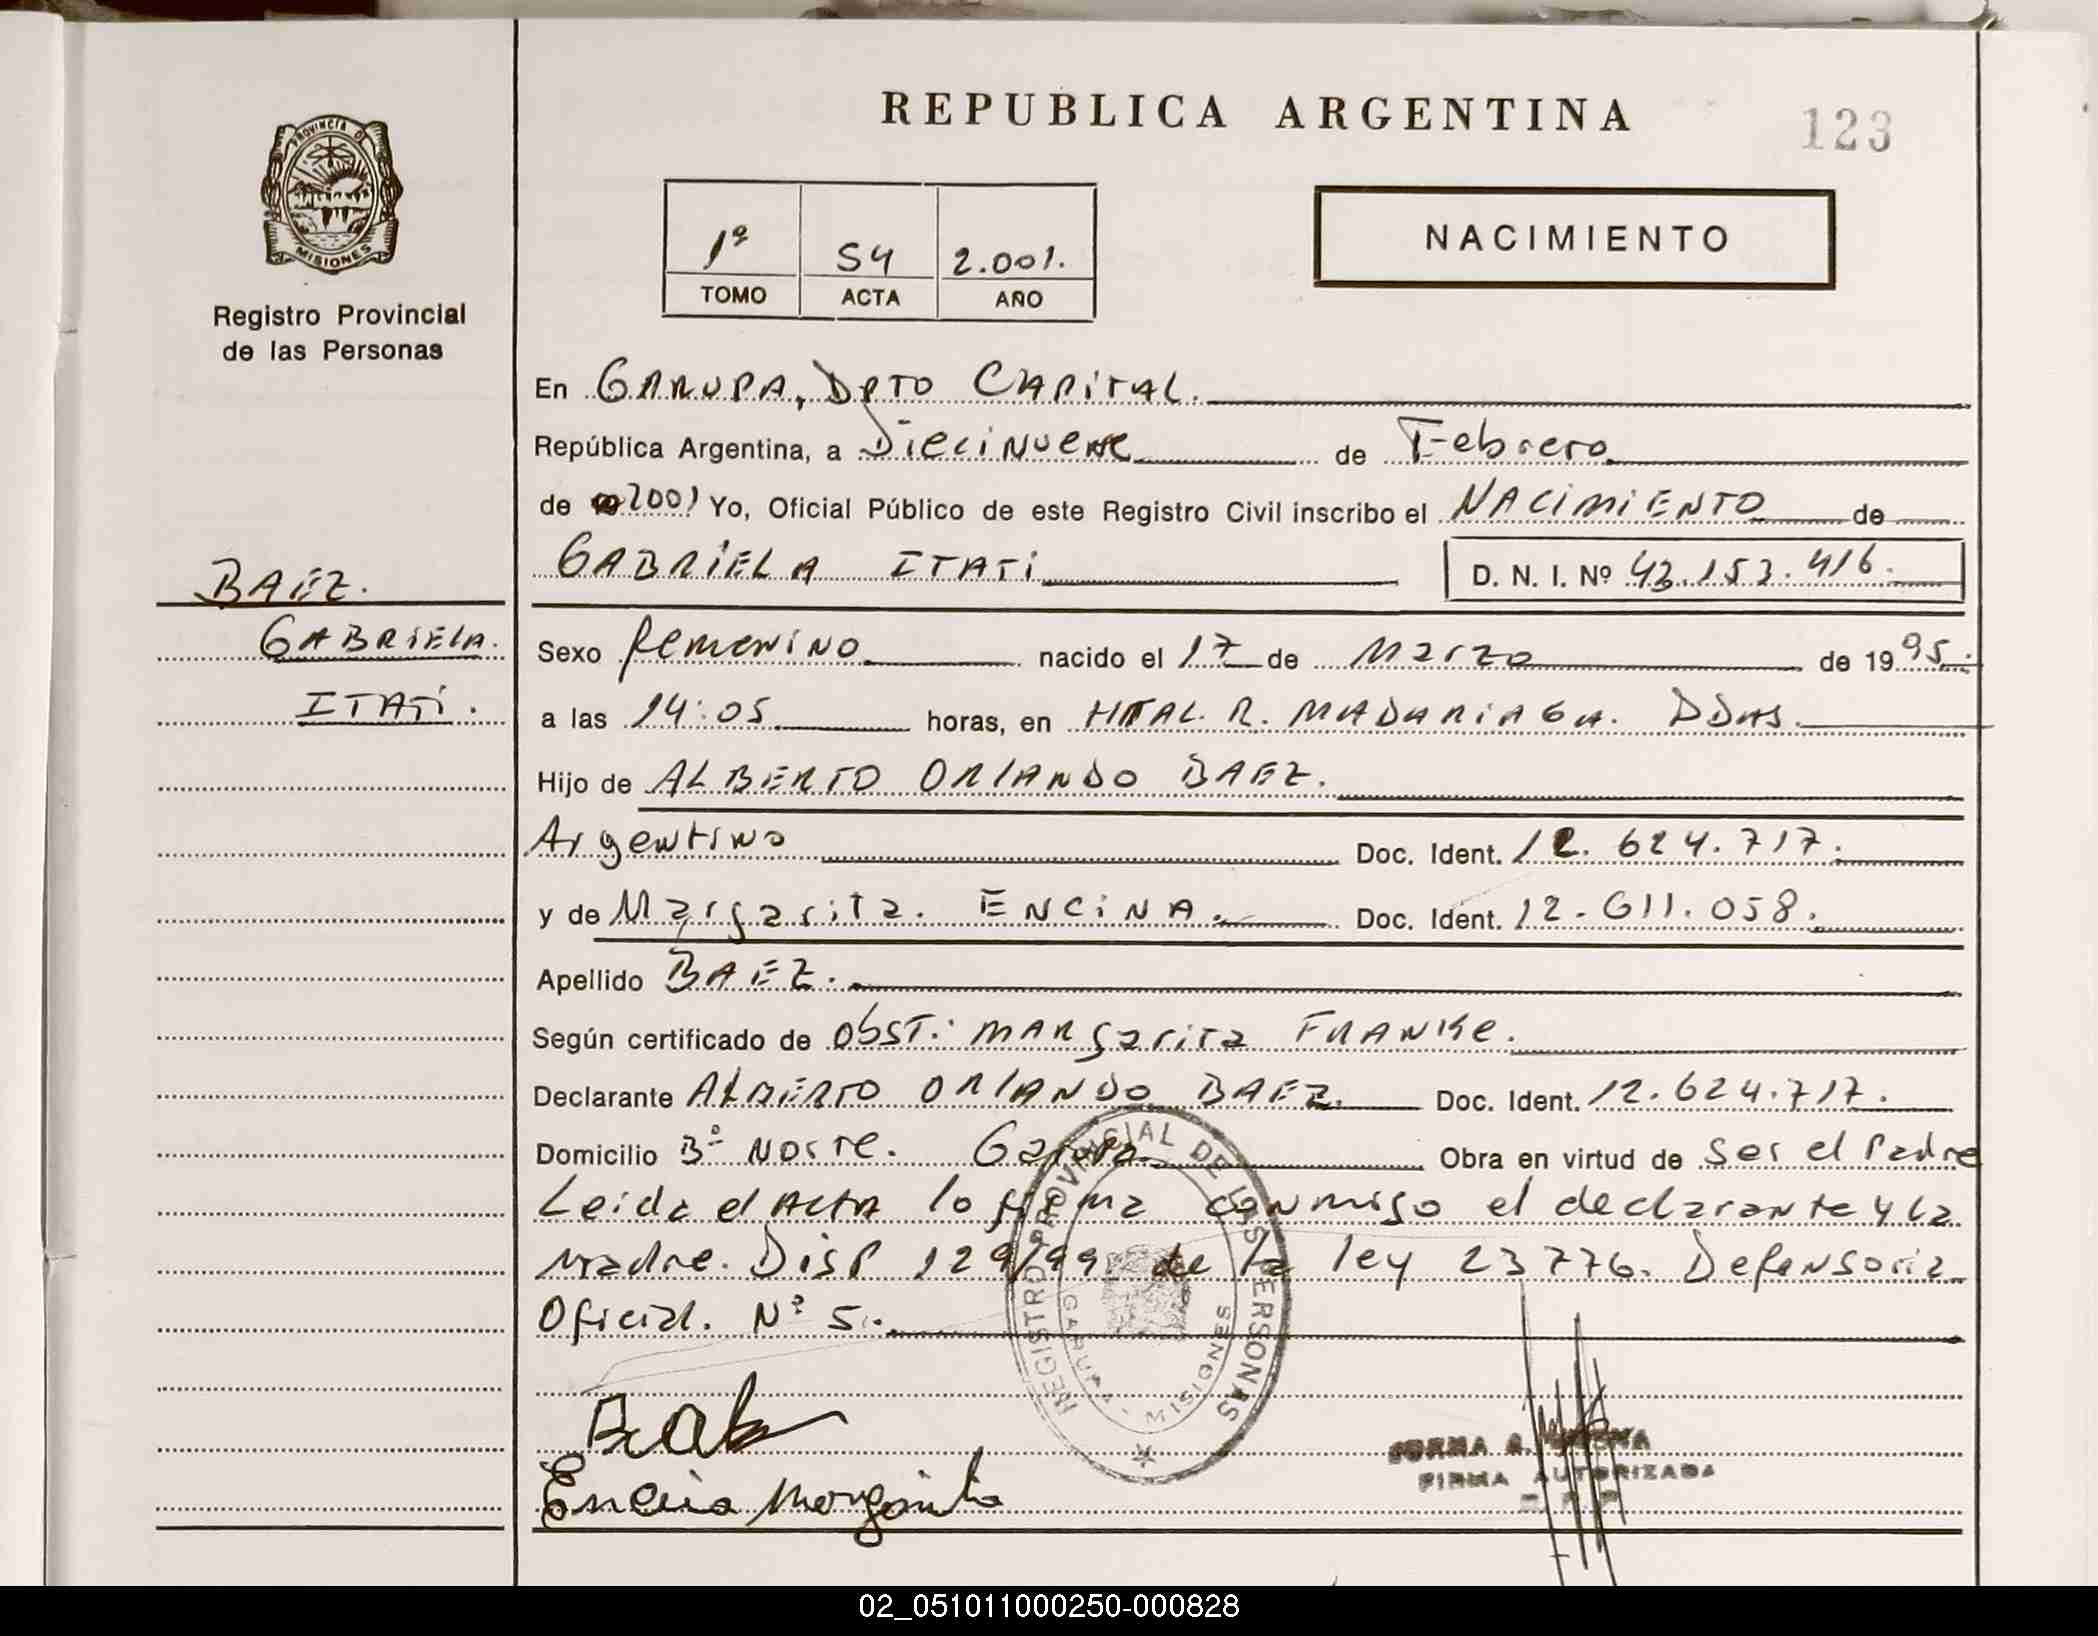 REPUBLICA ARGENTINA
123
PROVINCIA DE
MISIONES
Registro Provincial
de las Personas
1º 54 2.001.
TOMO ACTA AÑO
NACIMIENTO
En GARUPA, DPTO CAPITAL.
República Argentina, a Diecinueve de Febrero
de 2001 Yo, Oficial Público de este Registro Civil inscribo el NACIMIENTO de
GABRIELA ITATI D. N. I. Nº 43.153.416.
BAEZ.
GABRIELA.
ITATI.
Sexo femenino nacido el 17 de Marzo de 1995.
a las 14:05 horas, en HTAL. R. MADARIAGA. PDAS.
Hijo de ALBERTO ORLANDO BAEZ.
Argentino Doc. Ident. 12.624.717.
y de Margarita. ENCINA. Doc. Ident. 12.611.058.
Apellido BAEZ.
Según certificado de obst: MARgarita FRANKE.
Declarante ALBERTO ORLANDO BAEZ. Doc. Ident. 12.624.717.
Domicilio Bº Norte. Garupa Obra en virtud de Ser el Padre
Leida el Acta lo firma conmigo el declarante y la
madre. Disp 129/99 de la ley 23776. Defensoria
Oficial. Nº 5.
REGISTRO PROVINCIAL DE LAS PERSONAS
GARUPA - MISIONES
Encina Margarita
FIRMA AUTORIZADA
02_051011000250-000828